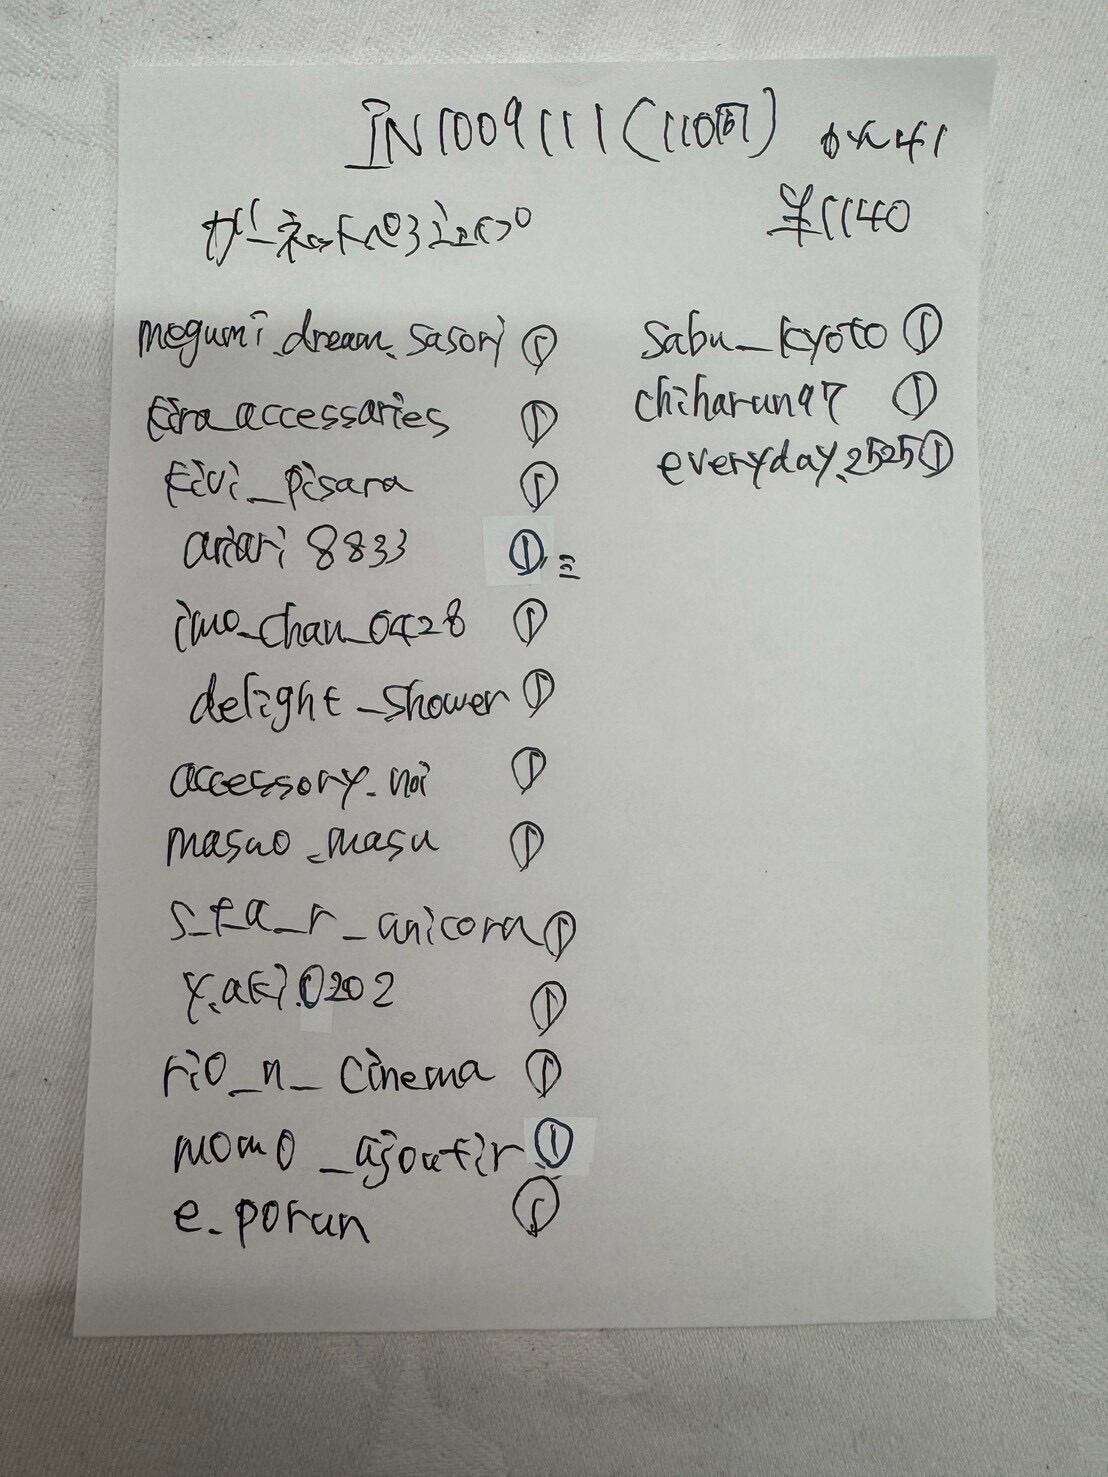 IN1009111(110商)
¥1140
ガーネット
megumi.dream.sasori ①
kira_accessaries ①
kivi_pisara ①
ariari8833 ①
imo_chan_0428 ①
delight_shower ①
accessory.noi ①
masao_masu ①
s_t_a_r_unicorn ①
y.aki.0202 ①
rio_n_cinema ①
momo_ajoutir ①
e.porun ①
sabu_kyoto ①
chiharun97 ①
everyday.2525 ①